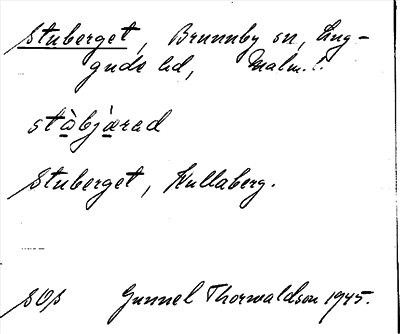 Stuberget, Brunnby sn, Lug-
gude hd, Malm. l.
stàbjàrad
Stuberget, Kullaberg.
SOS Gunnel Thorwaldson 1945.